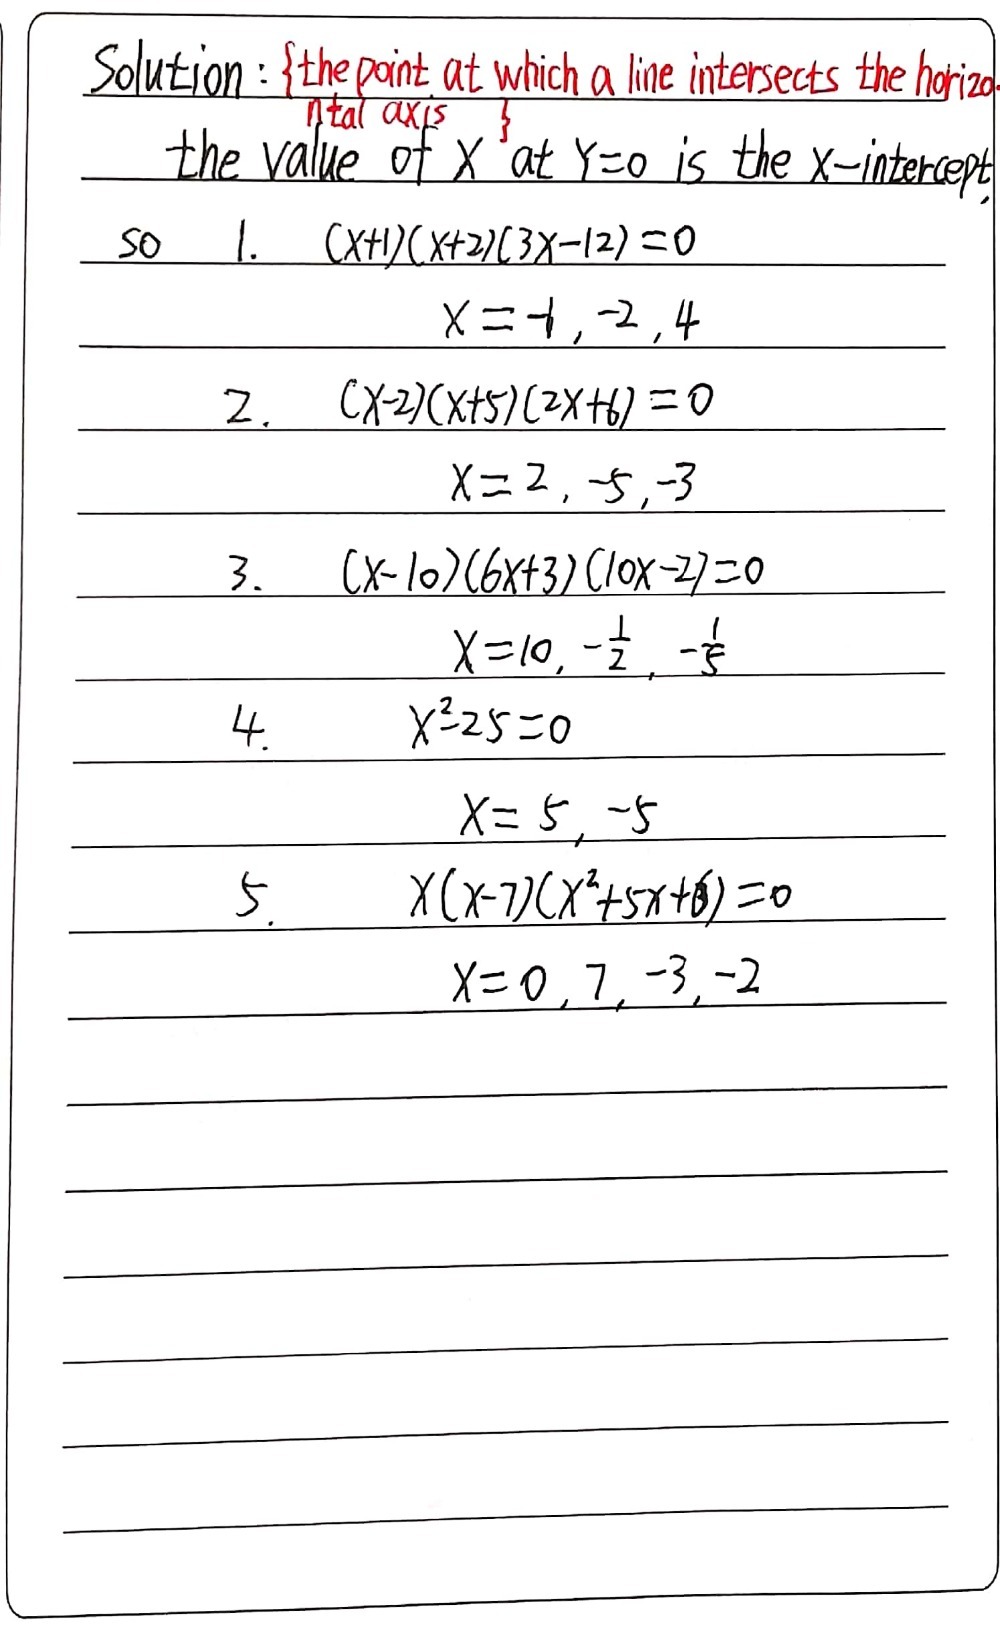 Solution : {the point at which a line intersects the horizo-
ntal axis }
the value of X at Y=0 is the x-intercept,
so 1. (x+1)(x+2)(3x-12)=0
x=-1,-2,4
2. (x-2)(x+5)(2x+6)=0
x=2,-5,-3
3. (x-10)(6x+3)(10x-2)=0
x=10,-1/2,-1/5
4. x²-25=0
x=5,-5
5. x(x-7)(x²+5x+6)=0
x=0,7,-3,-2